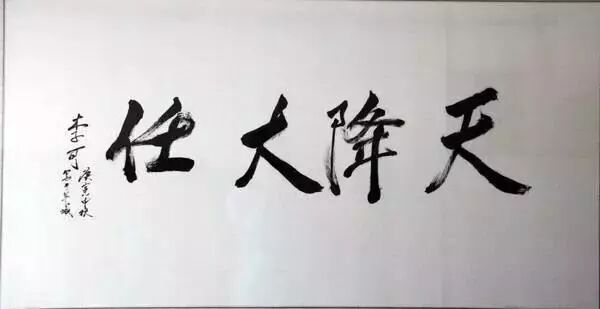 天降大任
李可
庚寅年秋